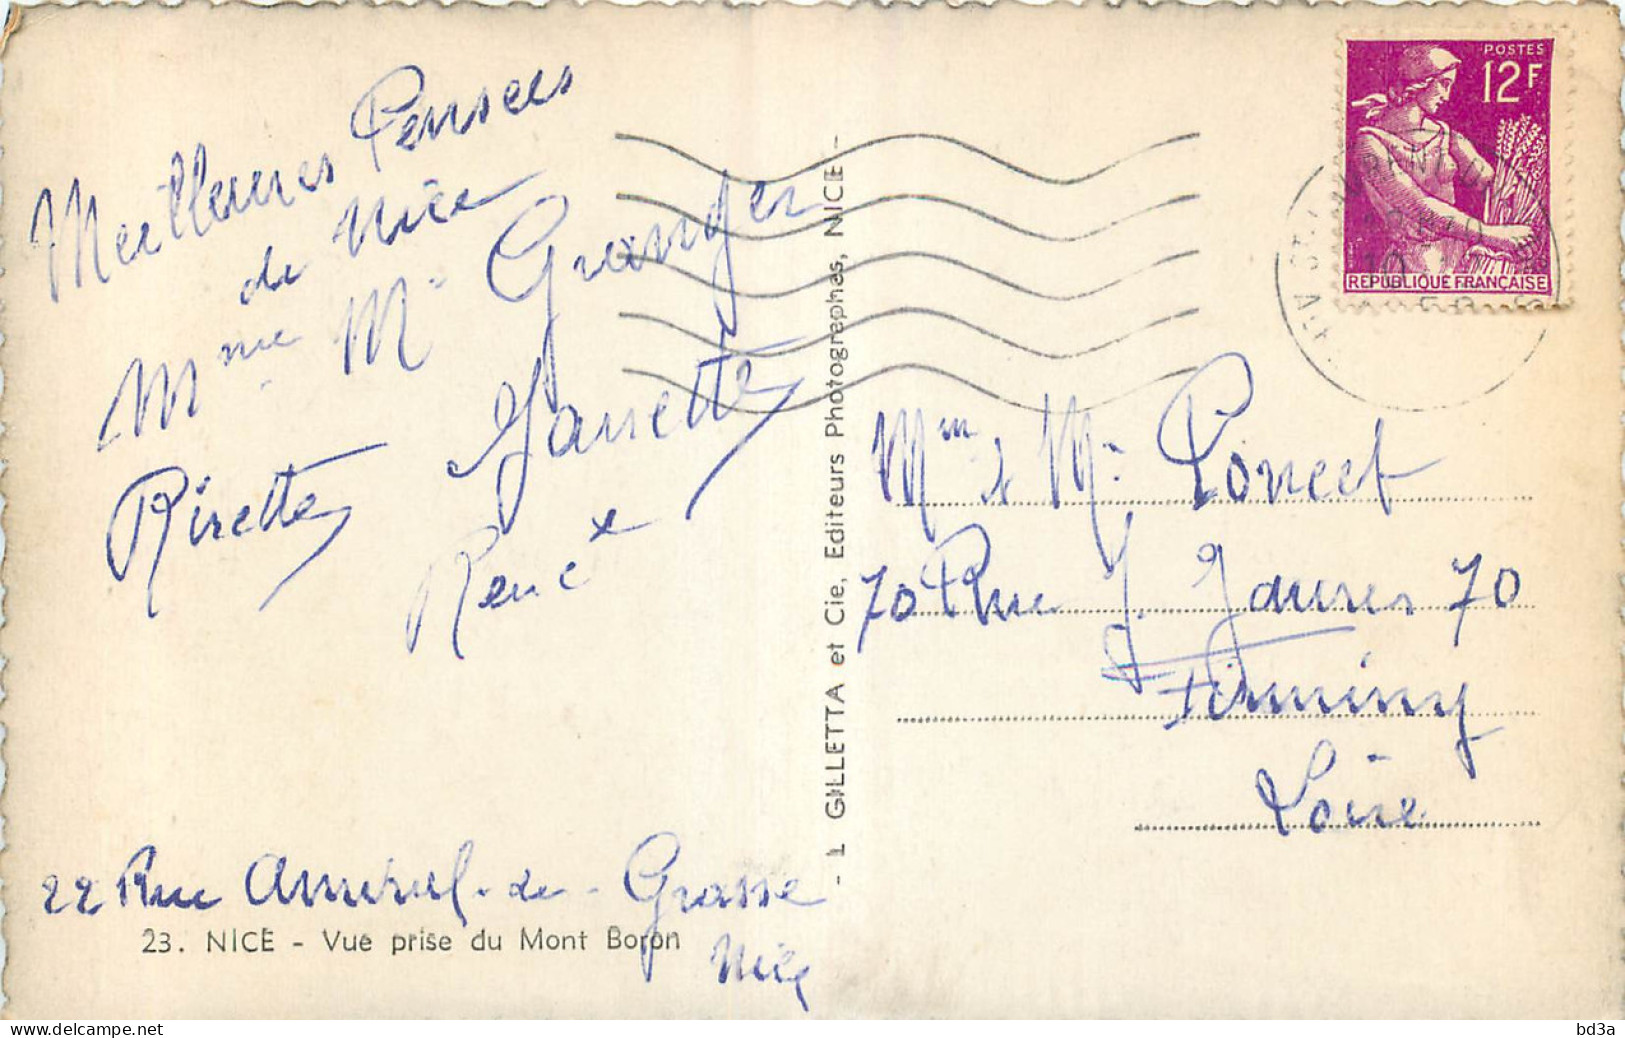 Meilleures Pensées
de Nice
Mme Mr Granger
Rirette
René
22 Rue Amiral-de-Grasse
Nice
23. NICE - Vue prise du Mont Boron
- GILLETTA et Cie, Editeurs Photographes, NICE -
POSTES
12F
REPUBLIQUE FRANÇAISE
ST LAURENT DU VAR
Mme & Mr Poncet
70 Rue J. Jaures 70
Firminy
Loire
bd3a
www.delcampe.net